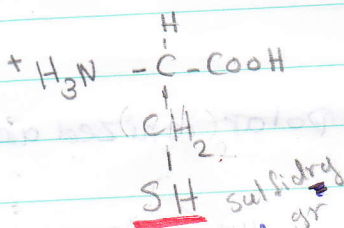 H
+ H3N - C - COOH
CH2
SH sulfidry
gr